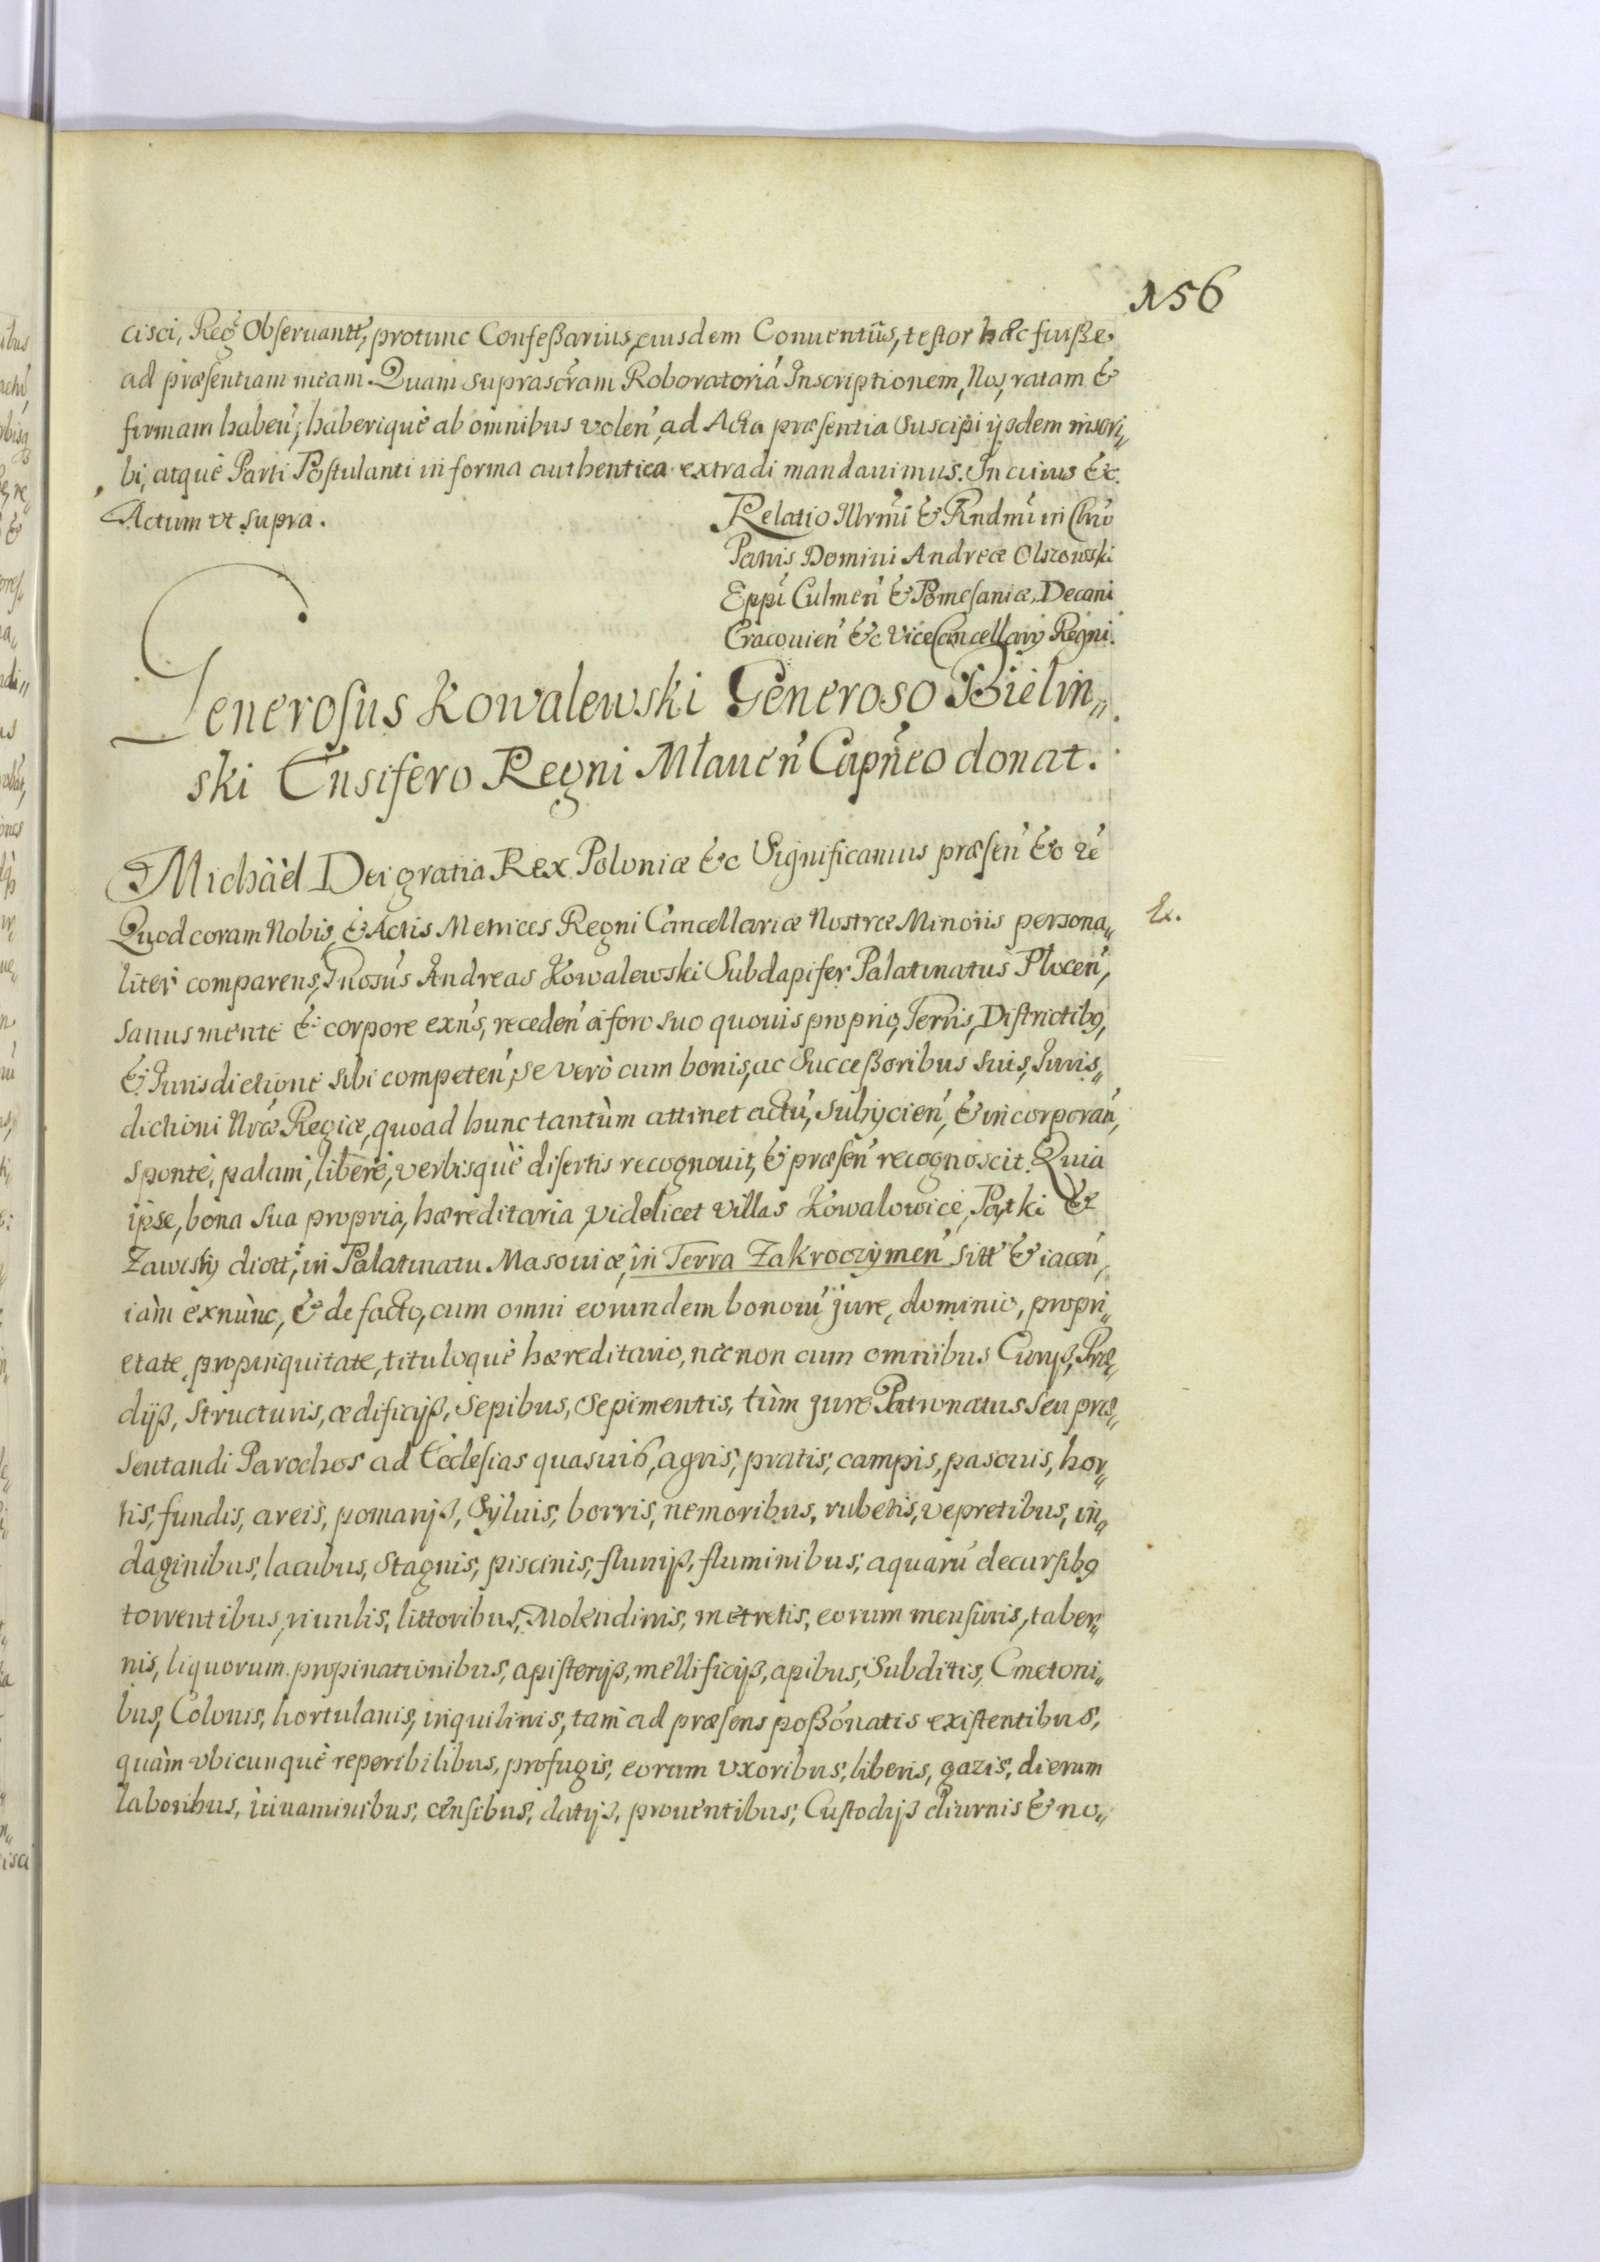 156
cisci, Reg. Obseruantt, protunc Confessarius, eiusdem Conuentûs, testor hæc fuisse
ad præsentiam meam. Quam suprascram Roboratoriã Inscriptionem, Nos, ratam &
firmam haben, haberiquè ab omnibus volen, ad Acta præsentia suscipi ijsdem inscri„
bi, atquè Parti Postulanti in forma authentica extradi mandauimus. In cuius &c.
Actum vt supra.
Relatio Illrmi & Rndmi in Chro
Patris Domini Andreæ Olszowski
Eppi Culmen & Pomesaniæ, Decani
Cracouien &c ViceCancellarij Regni.
Generosus Kowalewski Generoso Bielin„
ski Ensifero Regni Mlauen Capneo donat.
Michàèl Dei gratia Rex Poloniæ &c Significamus præsen &c
Quod coram Nobis, & Actis Metrices Regni Cancellariæ Nostræ Minoris persona„
liter comparens, Gnosus Andreas Kowalewski Subdapifer Palatinatus Plocen,
sanus mente & corpore exns, receden à foro suo quouis proprio, Terris, Districtibg,
& Jurisdictione sibi competen, se verò cum bonis, ac Successoribus suis, Juris„
dictioni Nræ Regiæ, quoad hunc tantùm attinet actũ, subijcien, & incorporan,
spontè, palam, liberè, verbisquè disertis recognouit, & præsen recognoscit. Quia
ipse, bona sua propria, hæreditaria, videlicet villas Kowalowice, Pątki &
Zawisty dictt, in Palatinatu Masouiæ, in Terra Zakroczymen sitt & iacen,
iàm exnùnc, & de facto, cum omni eorundem bonorũ jure, dominio, propri„
etate, propinquitate, tituloquè hæreditario, nec non cum omnibus Curijs, Præ„
dijs, structuris, ædificijs, sepibus, sepimentis, tùm jure Patronatus seu præ„
sentandi Parochos ad Ecclesias quasuis, agris, pratis, campis, pascuis, hor„
tis, fundis, areis, pomarijs, syluis, borris, nemoribus, rubetis, vepretibus, in„
daginibus, lacubus, stagnis, piscinis, fluuijs, fluminibus, aquarũ decursibg
torrentibus, riuulis, littoribus, Molendinis, metretis, eorum mensuris, taber„
nis, liquorum propinationibus, apisterijs, mellificijs, apibus, Subditis, Cmetoni„
bus, Colonis, hortulanis, inquilinis, tam ad præsens possonatis existentibus,
quàm vbicunquè reperibilibus, profugis, eorum vxoribus, liberis, gazis, dierum
laboribus, iuuaminibus, censibus, datijs, prouentibus, Custodijs diurnis & no„